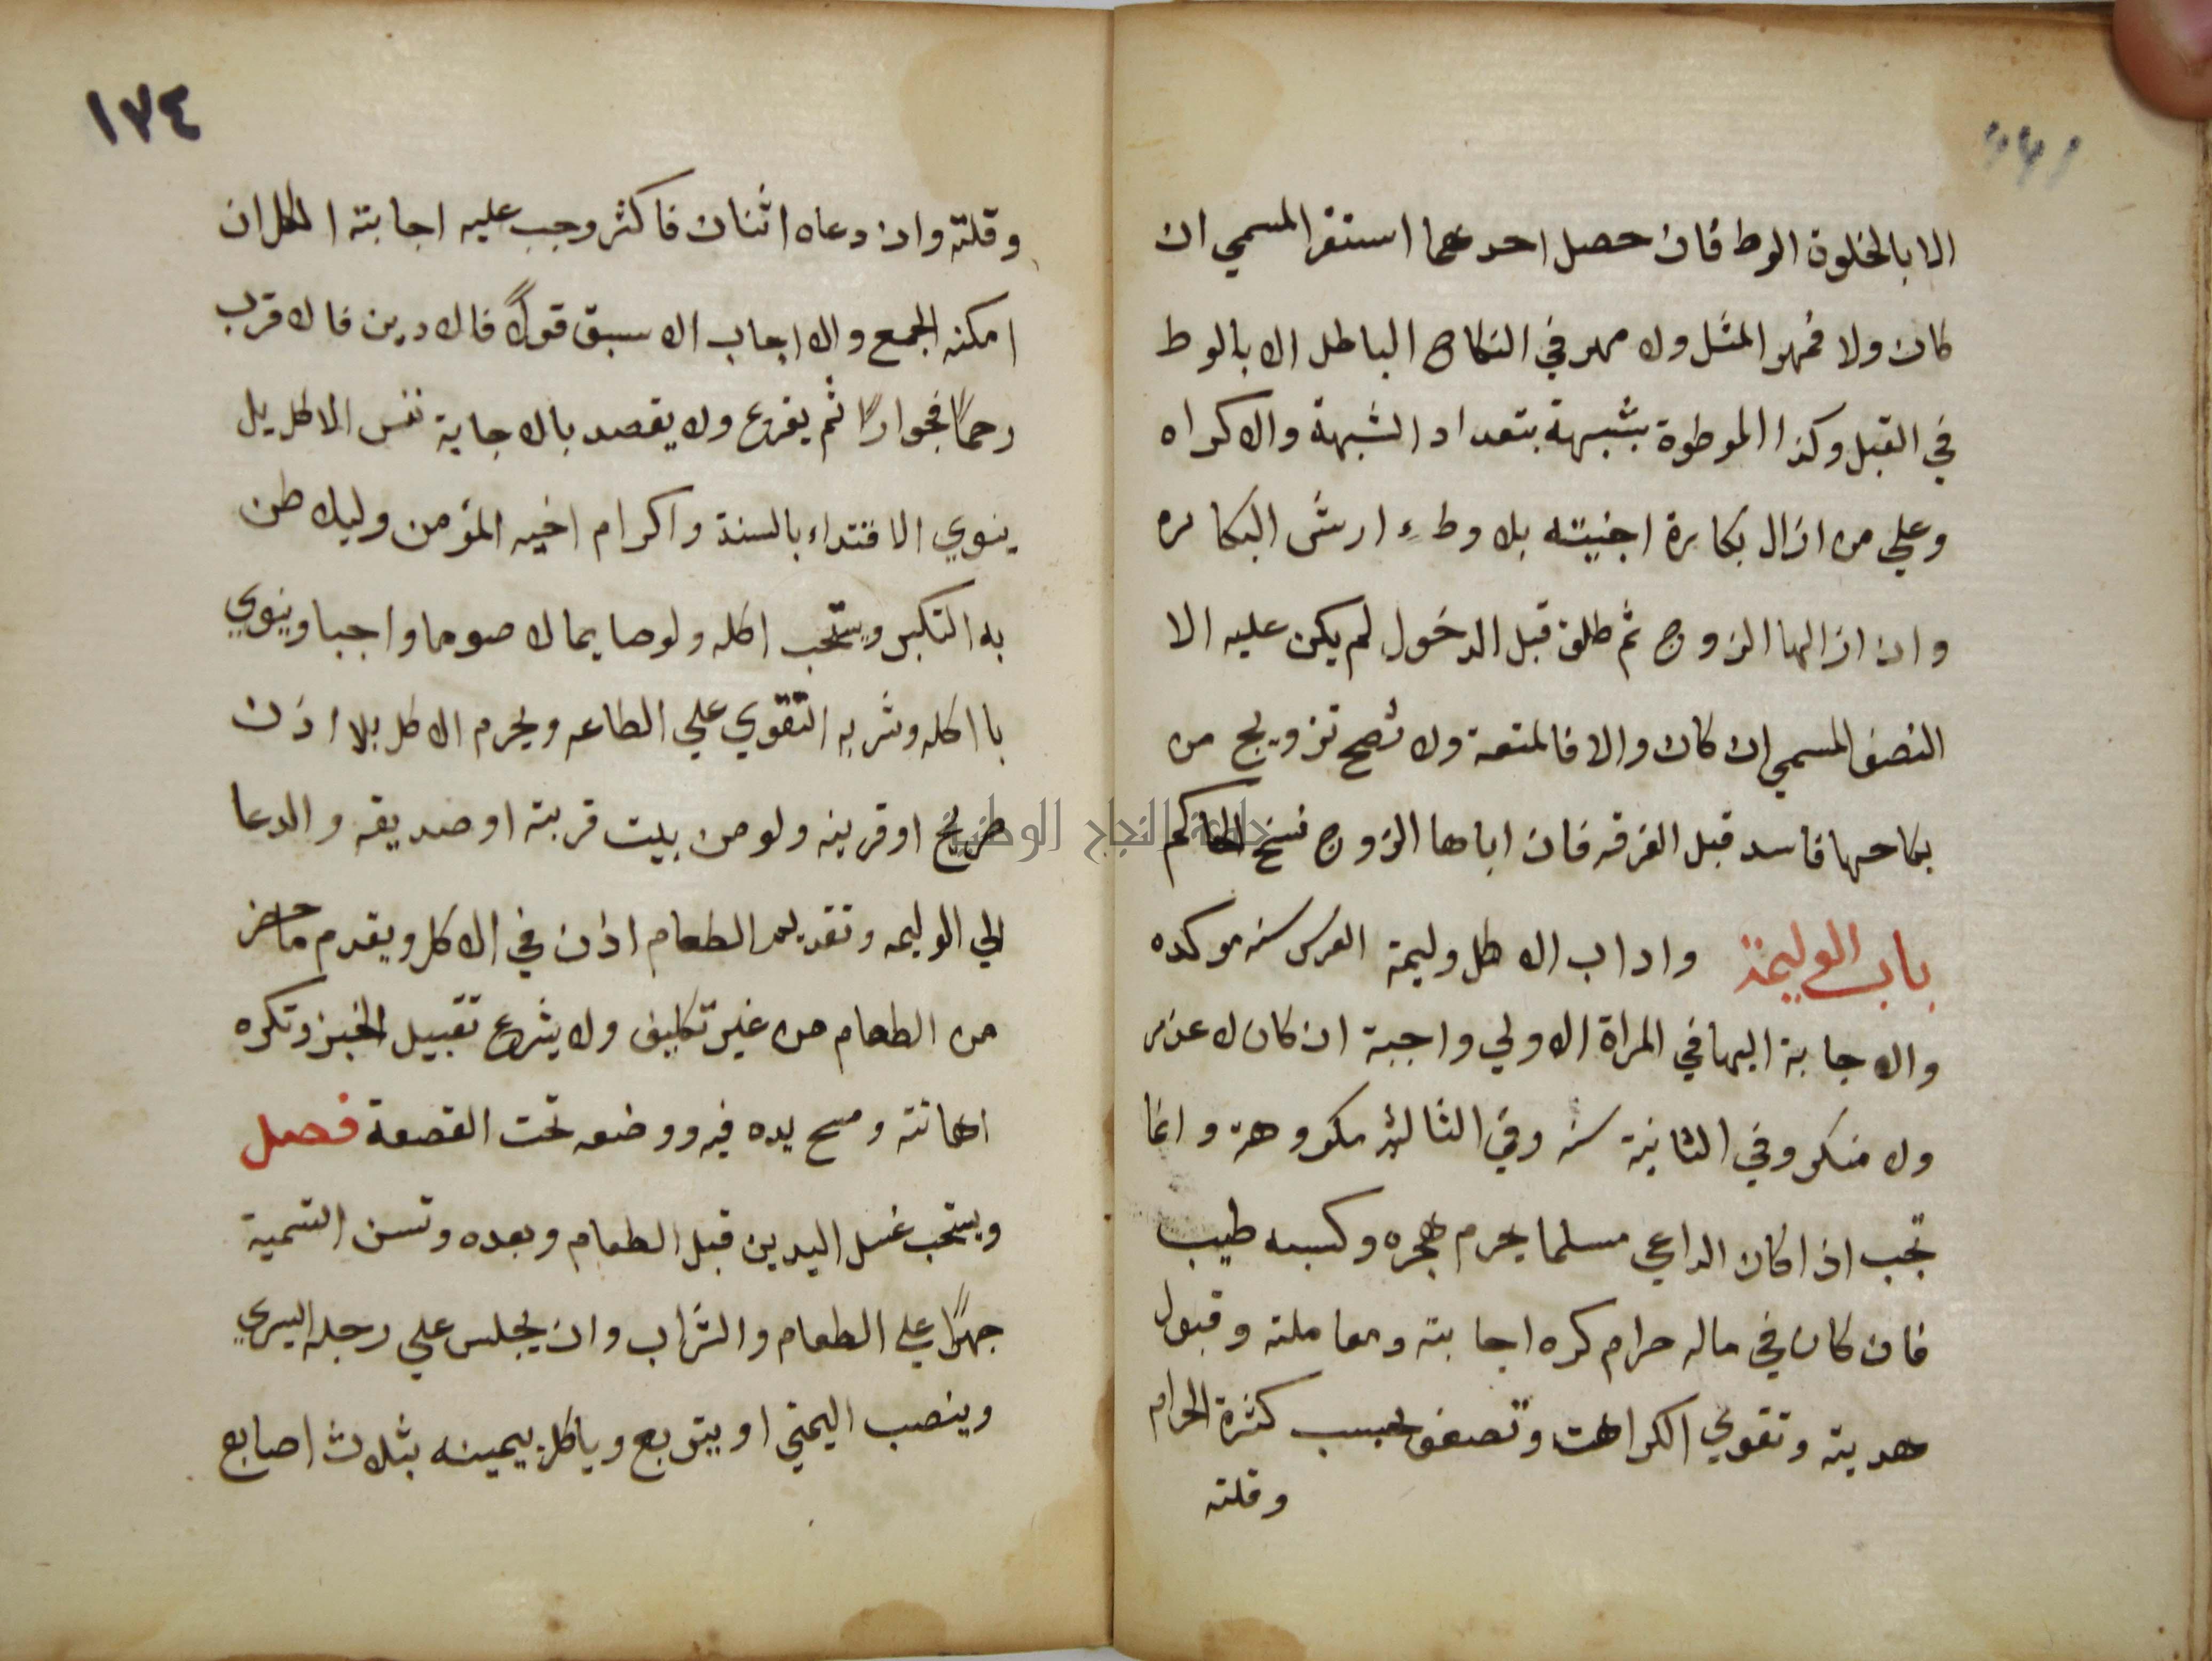 الا بالخلوة الوط فان حصل احدهما استقر المسمي ان
كان ولا فمهر المثل ولا مهر في النكاح الباطل الا بالوط
في القبل وكذا الموطوة بشبهة بتعداد الشبهة والاكراه
وعلي من ازال بكارة اجنبيته بلا وطء ارش البكاره
وان ازالها الزوج ثم طلق قبل الدخول لم يكن عليه الا
النصف المسمي ان كان والا فالمتعة ولا تصح تزويج من
نكاحها فاسد قبل الفرقه فان اباها الزوج فسخ الحاكم
باب الوليمة واداب الاكل وليمة العرس سنه موكده
والاجابة اليها في المراة الاولي واجبة ان كان لا عذر
ولا منكر وفي الثانية سنه وفي الثالثه مكروهة وانما
تجب اذا كان الداعي مسلما يحرم هجره وكسبه طيب
فان كان في ماله حرام كره اجابته ومعاملته وقبول
هديته وتقوي الكراهت وتضعف بحسب كثرة الحرام
وقلته
١٧٤
وقلته وان دعاه اثنان فاكثر وجب عليه اجابة الكل ان
امكنه الجمع والا اجاب الاسبق قولا فالادين فالاقرب
رحما فجوارا ثم يقرع ولا يقصد بالاجابة نفس الاكل بل
ينوي الاقتداء بالسنة واكرام اخيه المؤمن وليلا طن
به التكبر ويستحب اكله ولو صايما لا صوما واجبا وينوي
با اكله وشربه التقوي علي الطاعه ويحرم الاكل بلا اذن
صريح او قرينه ولو من بيت قريبه او صديقه والدعا
الي الوليمه وتقديم الطعام اذن في الاكل ويقدم ما حضر
من الطعام من غير تكليف ولا يشرع تقبيل الخبز وتكره
اهانته ومسح يده فيه ووضعه تحت القصعة فصل
ويستحب غسل اليدين قبل الطعام وبعده وتسن التسمية
جهرا علي الطعام والشراب وان يجلس علي رجله اليسري
وينصب اليمني او يتربع وياكل بيمينه بثلاث اصابع
جامعة النجاح الوطنية